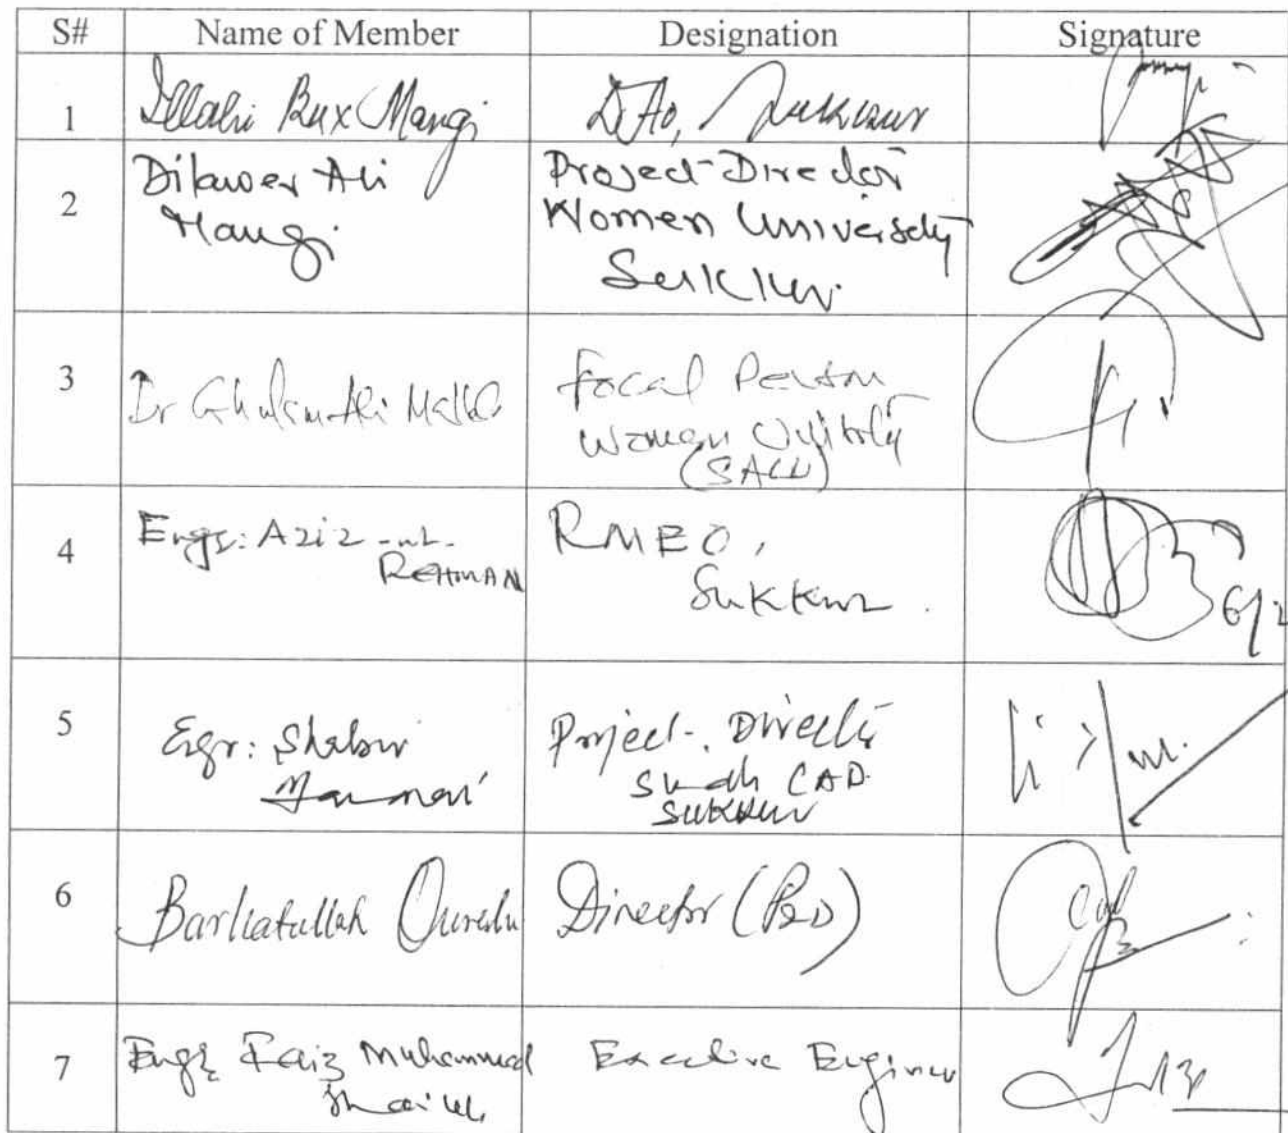 S# Name of Member Designation Signature
1 Illahi Bux Mangi DAO, Sukkur
2 Dilawer Ali Project Director
Mangi Women University
Sukkur
3 Dr Ghulam Ali Focal Person
Women
(SALU)
4 Engr: Aziz-ur- RMEO,
REHMAN Sukkur.
5 Engr: Shabir Project Director
Sindh CAD
Sukkur
6 Barkatullah Qureshi Director (P&D)
7 Engr Faiz Muhammad Executive Engineer
Shaikh